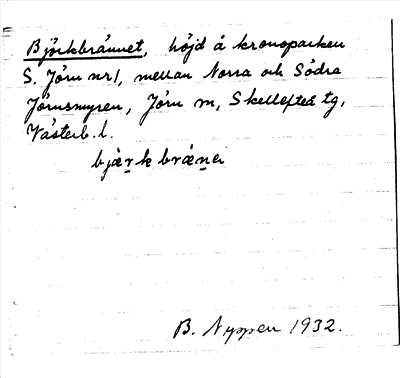 Björkbrännet, höjd å kronoparken
S. Jörn nr 1, mellan Norra och Södra
Jörnsmyren, Jörn sn, Skellefteå tg,
Västerb. l.
bjärk bräne
B. Nyppen 1932.